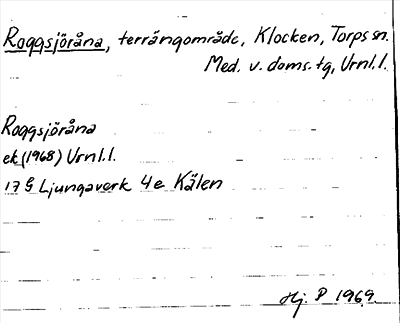 Roggsjöråna, terrängområde, Klocken, Torps sn.
Med. v. doms. tg, Vrnl. l.
Roggsjöråna
ek (1968) Vrnl. l.
17 G Ljungaverk 4 e Kälen
Hj. P 1969.